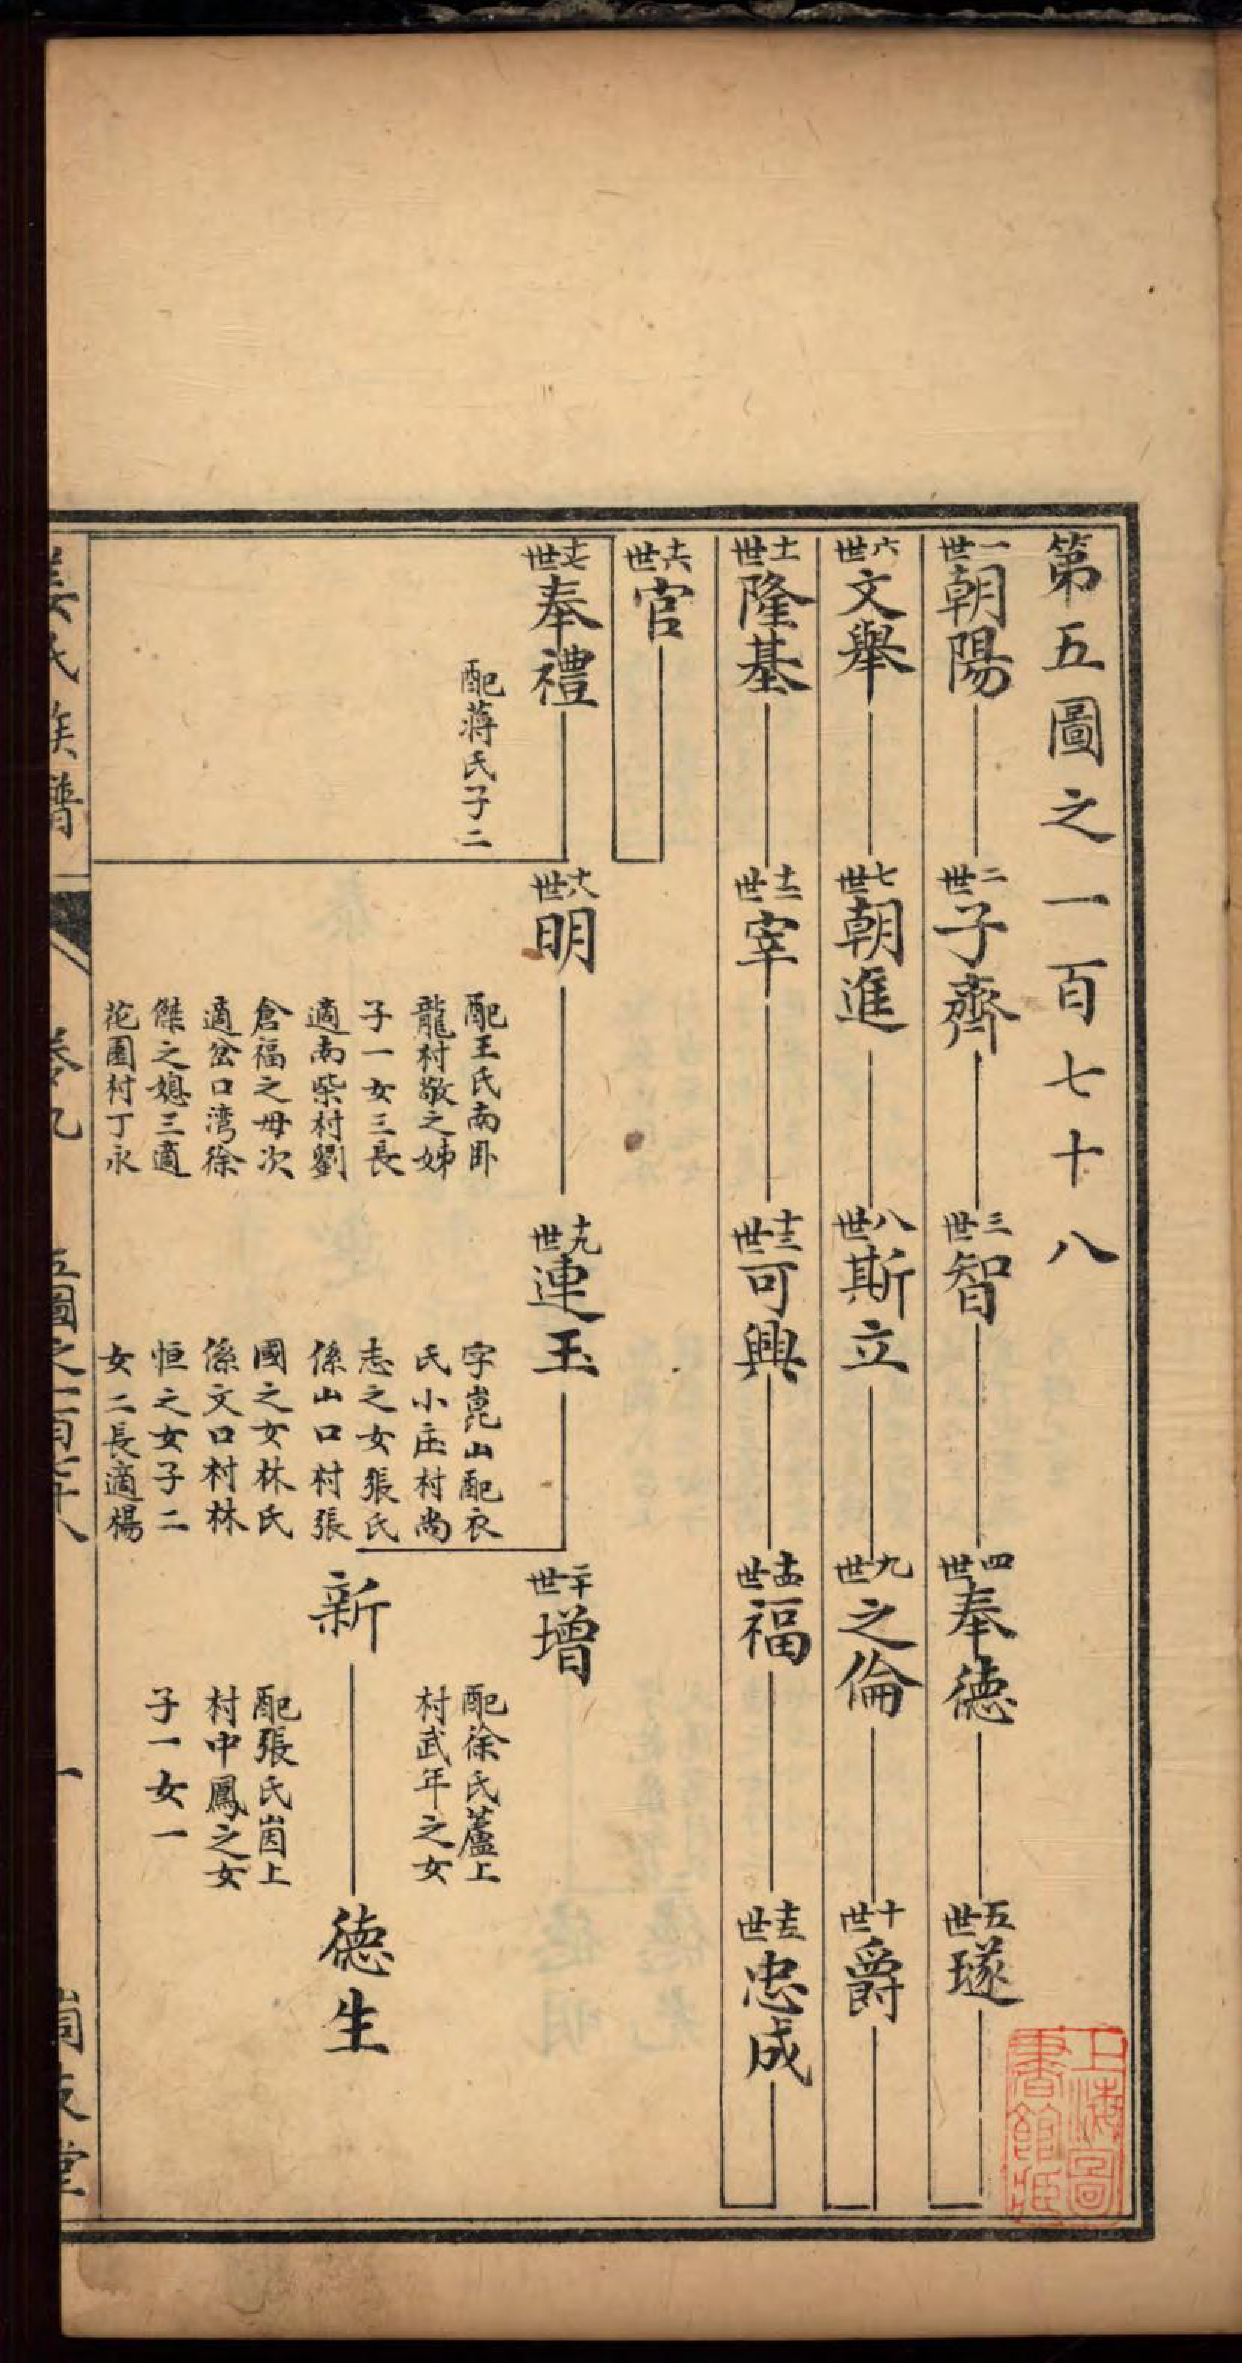 第五圖之一百七十八
一世朝陽
二世子齊
三世智
四世奉德
五世璲
六世文舉
七世朝進
八世斯立
九世之倫
十世爵
十一世隆基
十二世宰
十三世可興
十四世福
十五世忠成
十六世官
十七世奉禮
配蔣氏子二
十八世明
配王氏南卧
龍村敬之姊
子一女三長
適南柴村劉
倉福之母次
適岔口湾徐
傑之媳三適
花園村丁永
十九世連玉
字崑山配衣
氏小庄村尚
志之女張氏
係山口村張
國之女林氏
係文口村林
恒之女子二
女二長適楊
二十世增
配徐氏蘆上
村武年之女
新
配張氏崮上
村中鳳之女
子一女一
德生
姜氏族譜
卷九
五圖之一百七十八
一
上海圖
書館藏